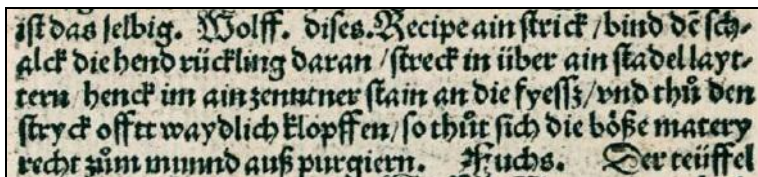 iſt das ſelbig. Wolff. diſes. Recipe ain ſtrick / bind dē ſch-
alck die hend rückling daran / ſtreck in über ain ſtadel layt-
tern / henck im ain zenntner ſtain an die fyeſſz / vnd thů den
ſtryck offtt waydlich klopffen / ſo thůt ſich die bőße matery
recht zům munnd auß purgiern. Fuchs. Der teüffel